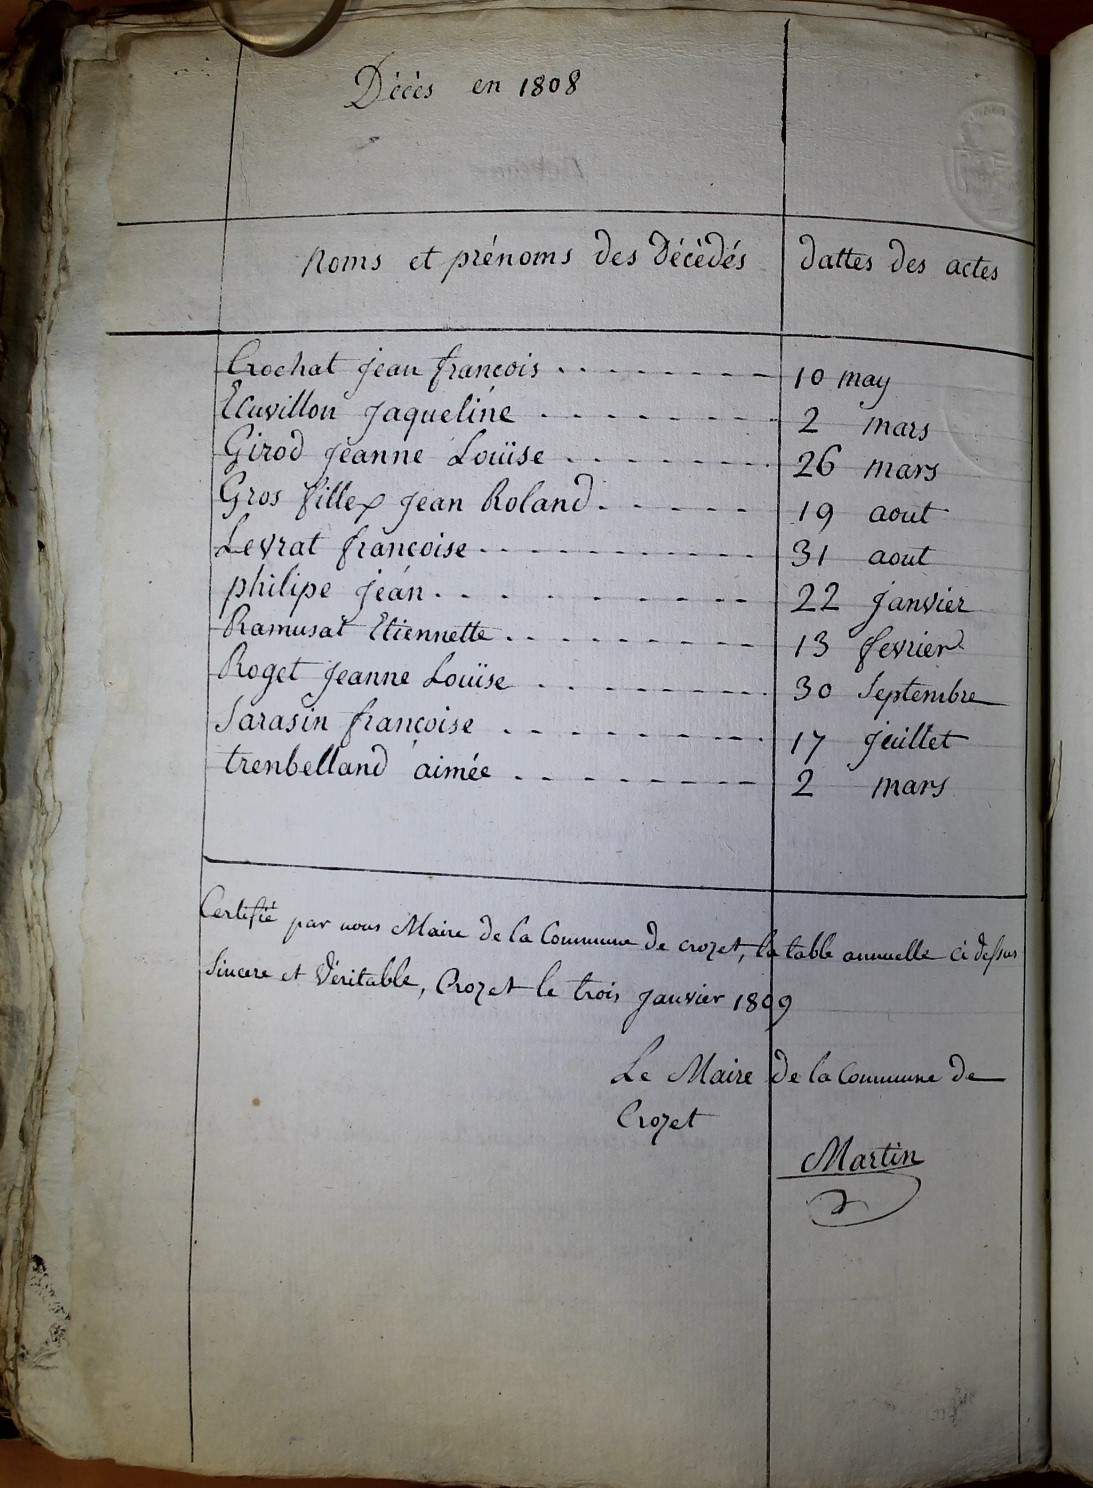 Décés en 1808
Noms et prénoms des Décédés dattes des actes
Crochat jean françois 10 may
Ecuvillon jaqueline 2 mars
Girod jeanne Louïse 26 mars
Gros fillex jean Roland 19 aout
Levrat françoise 31 aout
philipe jean 22 janvier
Ramusat Etiennette 13 fevrier
Roget jeanne Louïse 30 Septembre
Sarasin françoise 17 juillet
trenbelland aimée 2 mars
Certifié par nous Maire de la Commune de crozet, la table annuelle ci dessus
Sincere et Véritable, Crozet le trois janvier 1809
Le Maire de la Commune de
Crozet
Martin